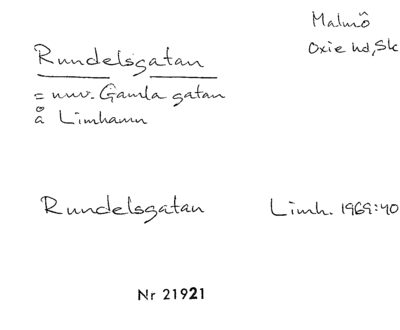 Malmö
Oxie hd, Sk
Rundelsgatan
= nuv. Gamla gatan
å Limhamn
Rundelsgatan Limh. 1969:40
Nr 21921